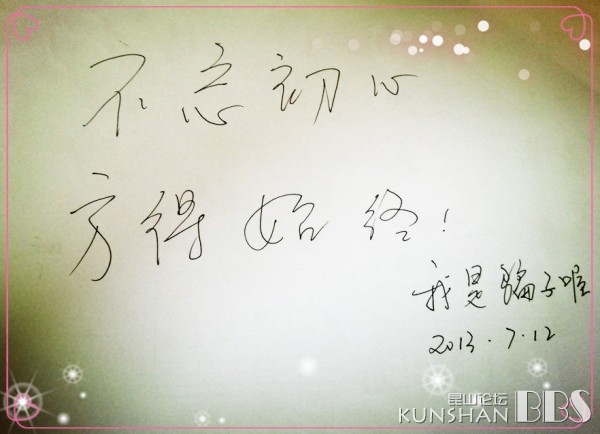 不忘初心
方得始终!
我是骗子喔
2013.7.12
昆山论坛
KUNSHAN BBS